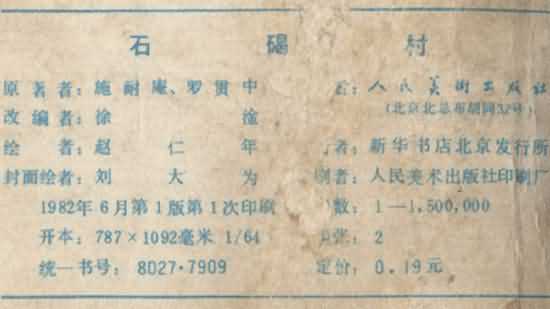 石碣村
原著者：施耐庵、罗贯中
改编者：徐淦
绘者：赵仁年
封面绘者：刘大为
1982年6月第1版第1次印刷
开本：787×1092毫米 1/64
统一书号：8027·7909
者：人民美术出版社
（北京北总布胡同32号）
者：新华书店北京发行所
刷者：人民美术出版社印刷厂
数：1—1,500,000
张：2
定价：0.19元